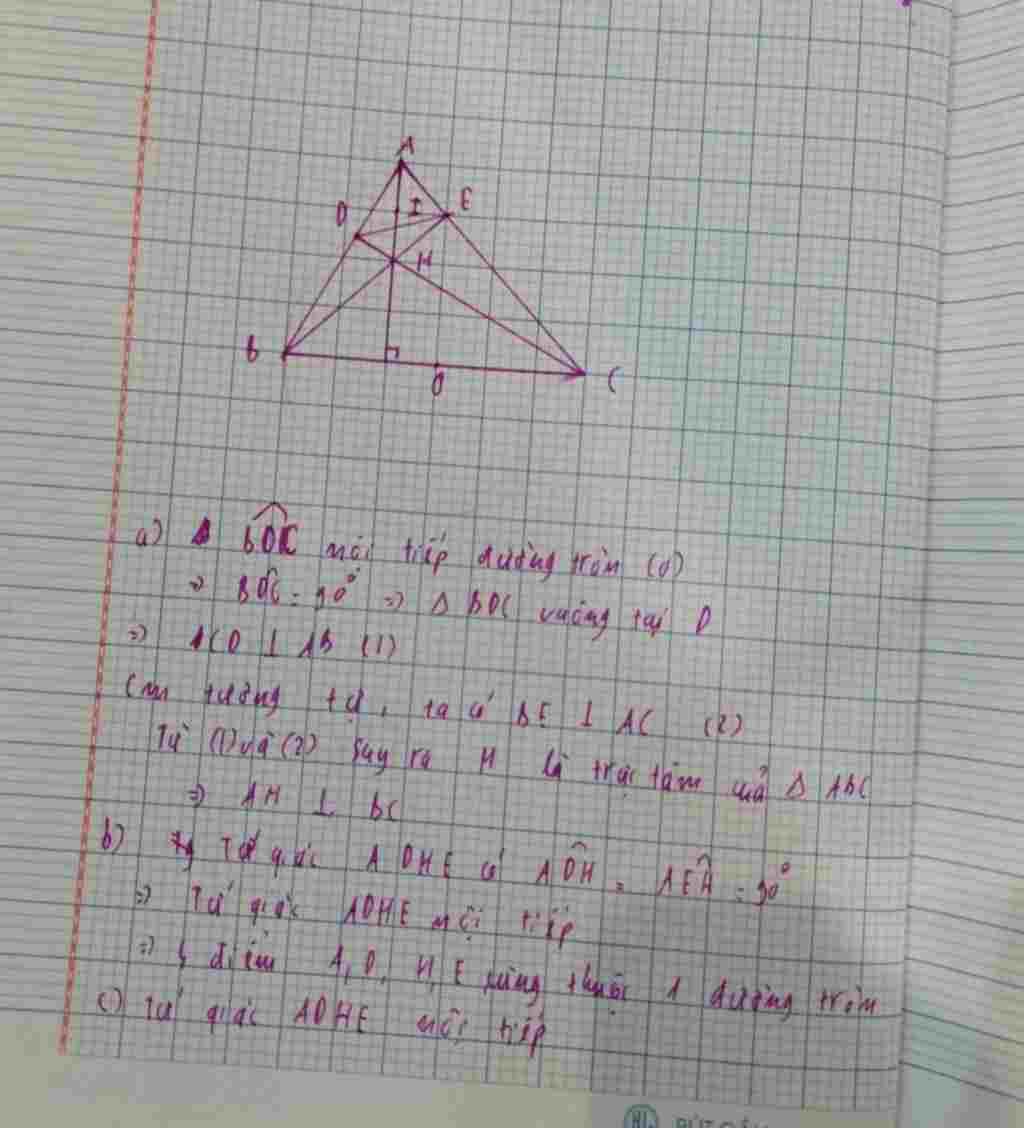 A
D
I
E
H
B
O
C
a) BDC nội tiếp đường tròn (O)
⇒ BDC = 90° ⇒ Δ BDC vuông tại D
⇒ CD ⊥ AB (1)
Cm tương tự, ta có BE ⊥ AC (2)
Từ (1) và (2) suy ra H là trực tâm của Δ ABC
⇒ AH ⊥ BC
b) Tứ giác ADHE có ADH = AEH = 90°
⇒ Tứ giác ADHE nội tiếp
⇒ 4 điểm A, D, H, E cùng thuộc 1 đường tròn
c) Tứ giác ADHE nội tiếp